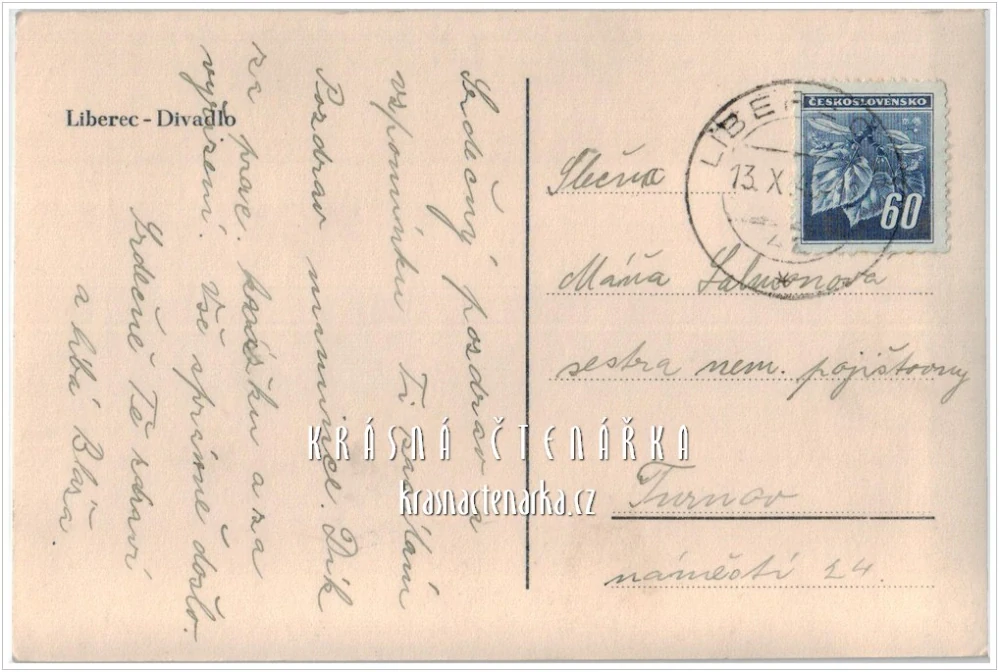 Liberec - Divadlo
Srdečný pozdrav a
vzpomínku Ti zasílám
Pozdrav mamince. Dík
za práve. knížku a za
vyřízení. Vše správně došlo.
Srdečně Tě zdraví
a líbá Blája.
ČESKOSLOVENSKO
60
LIBEREC
13. X.
Slečna
Máňa Salmonová
sestra nem. pojišťovny
Turnov
náměstí 24.
KRÁSNÁ ČTENÁŘKA
krasnactenarka.cz